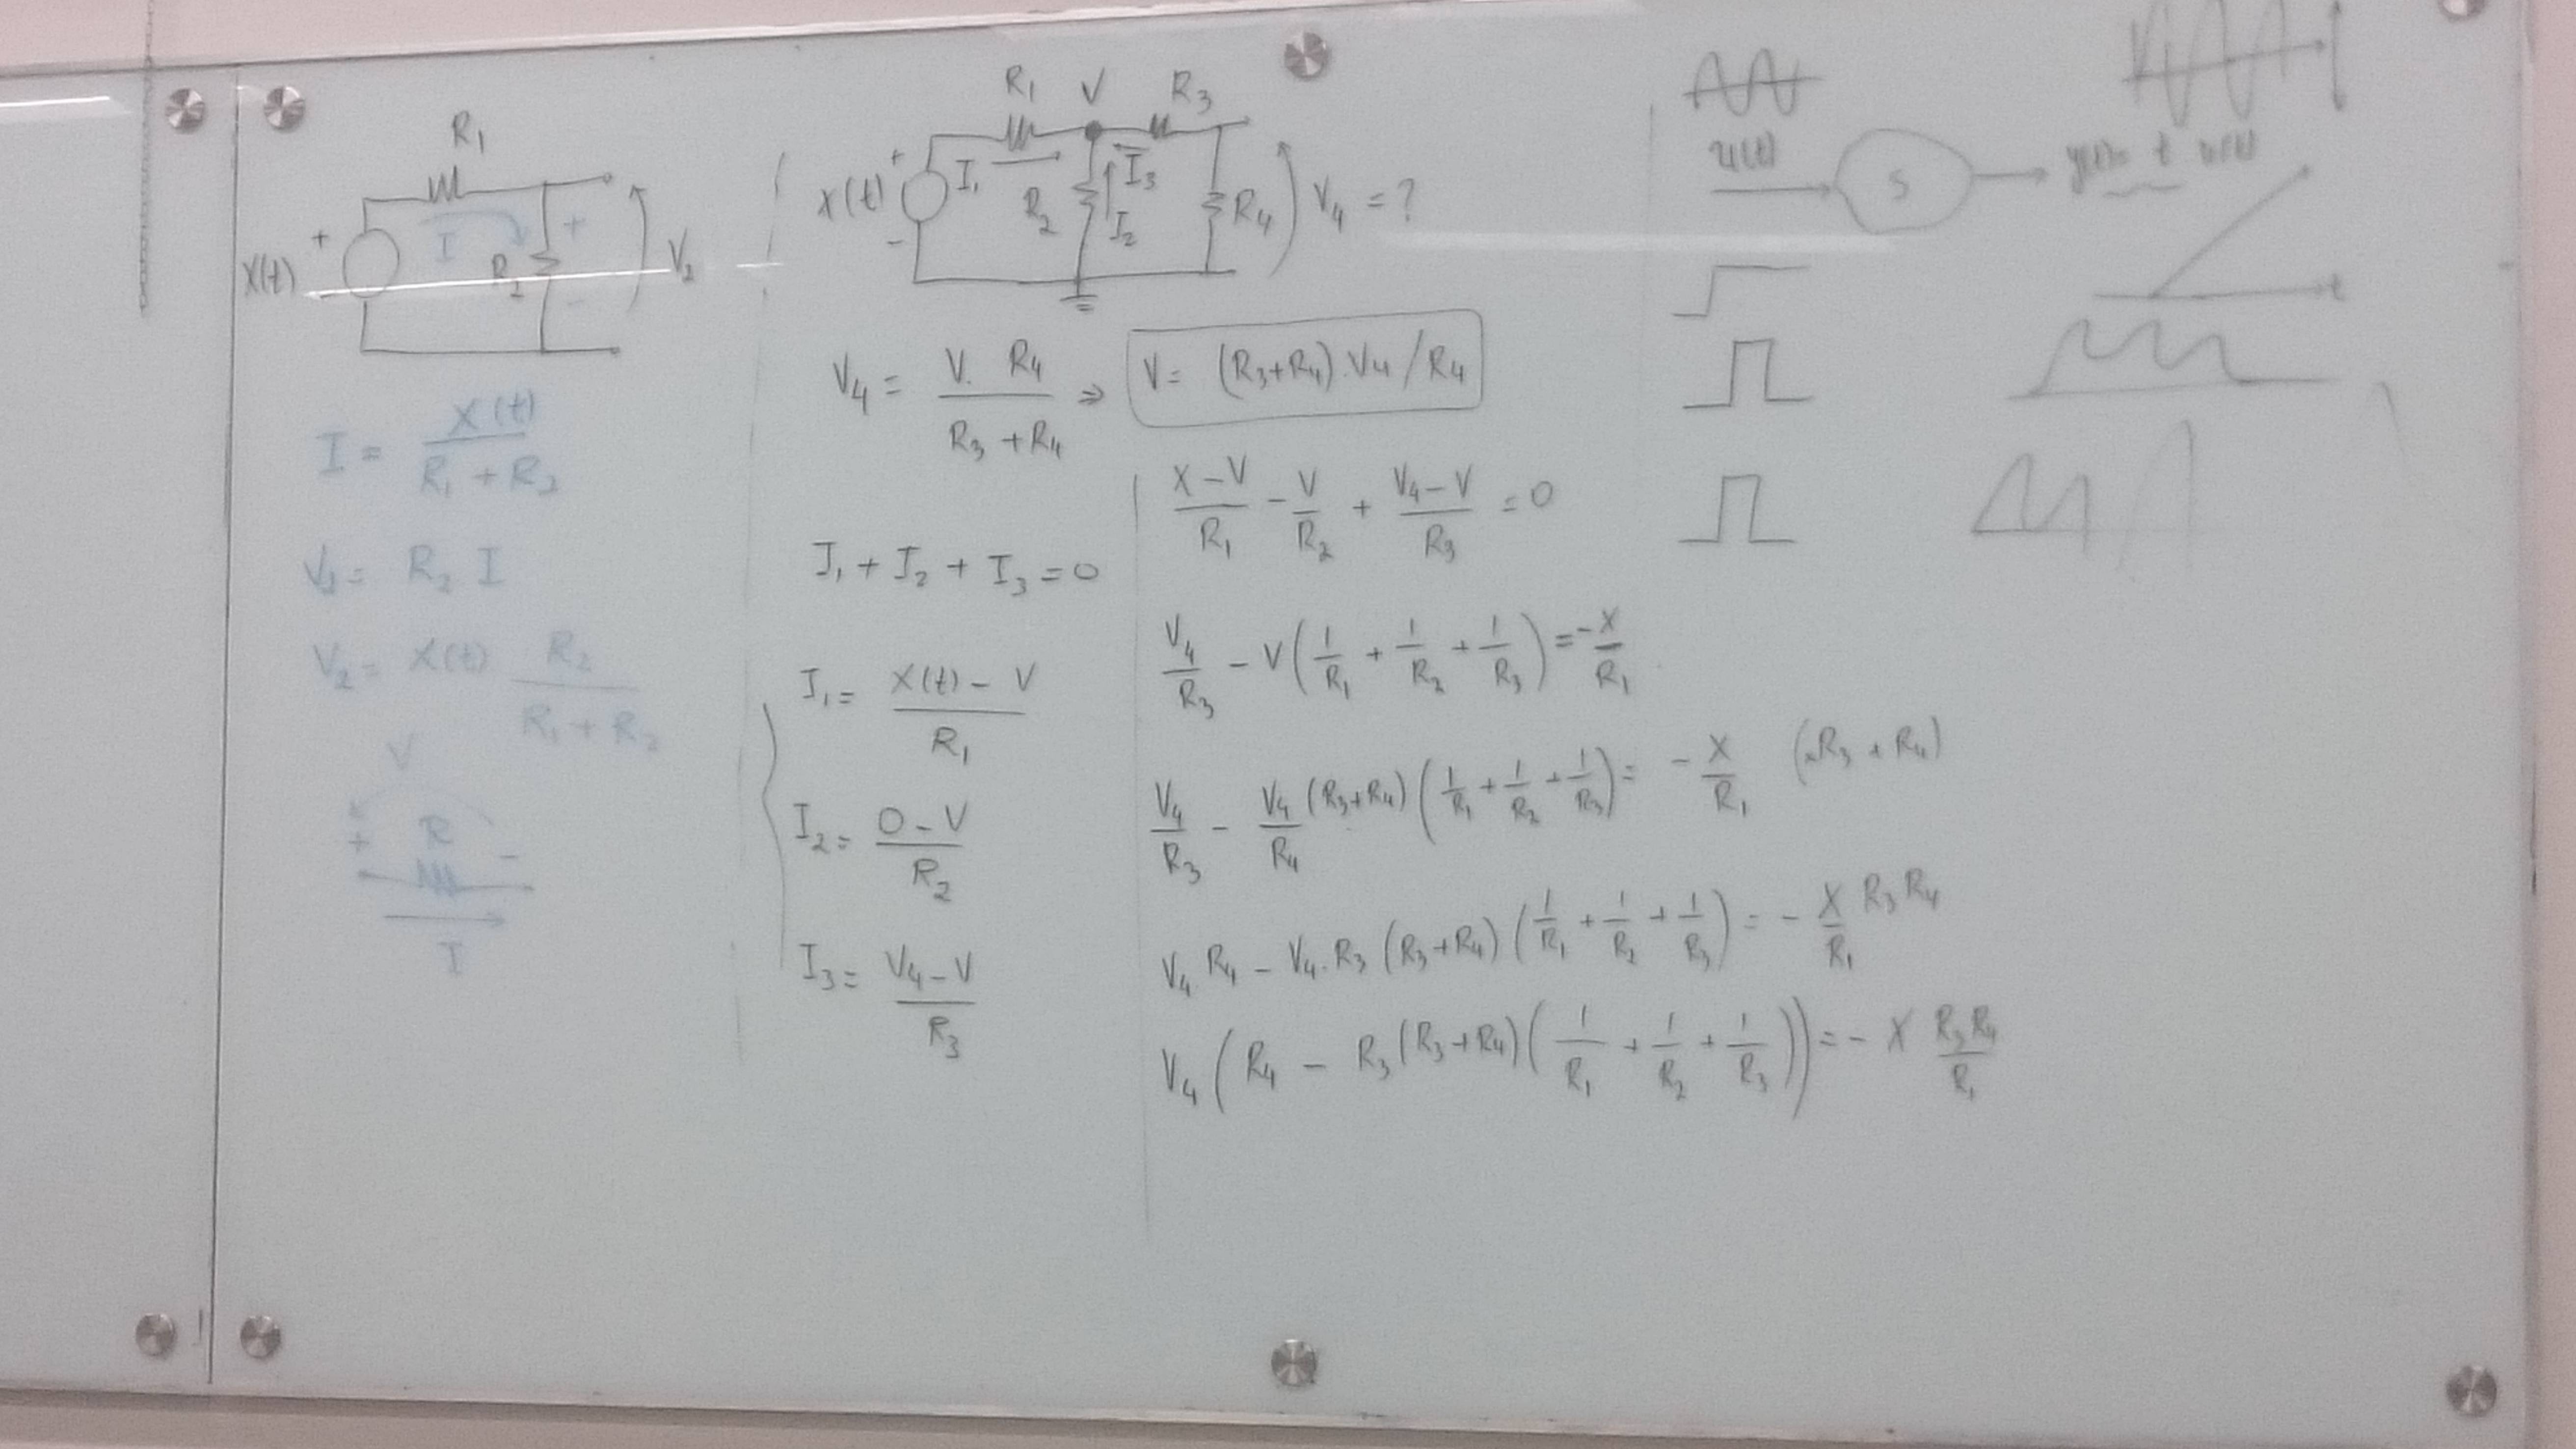 R₁
X(t) + I R₂ + - V₂
I = X(t) / (R₁ + R₂)
V₂ = R₂ I
V₂ = X(t) R₂ / (R₁ + R₂)
V
+ R -
I
R₁ V R₃
X(t) + - I₁ R₂ I₃ I₂ R₄ V₄ = ?
V₄ = V. R₄ / (R₃ + R₄) ⇒ V = (R₃+R₄).V₄/R₄
I₁ + I₂ + I₃ = 0
I₁ = (X(t) - V) / R₁
I₂ = (0 - V) / R₂
I₃ = (V₄ - V) / R₃
(X - V)/R₁ - V/R₂ + (V₄ - V)/R₃ = 0
V₄/R₃ - V(1/R₁ + 1/R₂ + 1/R₃) = -X/R₁
V₄/R₃ - V₄/R₄ (R₃+R₄)(1/R₁ + 1/R₂ + 1/R₃) = - X/R₁ (×R₃ + R₄)
V₄ R₄ - V₄.R₃ (R₃+R₄)(1/R₁ + 1/R₂ + 1/R₃) = - X/R₁ R₃R₄
V₄(R₄ - R₃(R₃+R₄)(1/R₁ + 1/R₂ + 1/R₃)) = - X R₃R₄/R₁
u(t) S y(t) = t u(t)
t